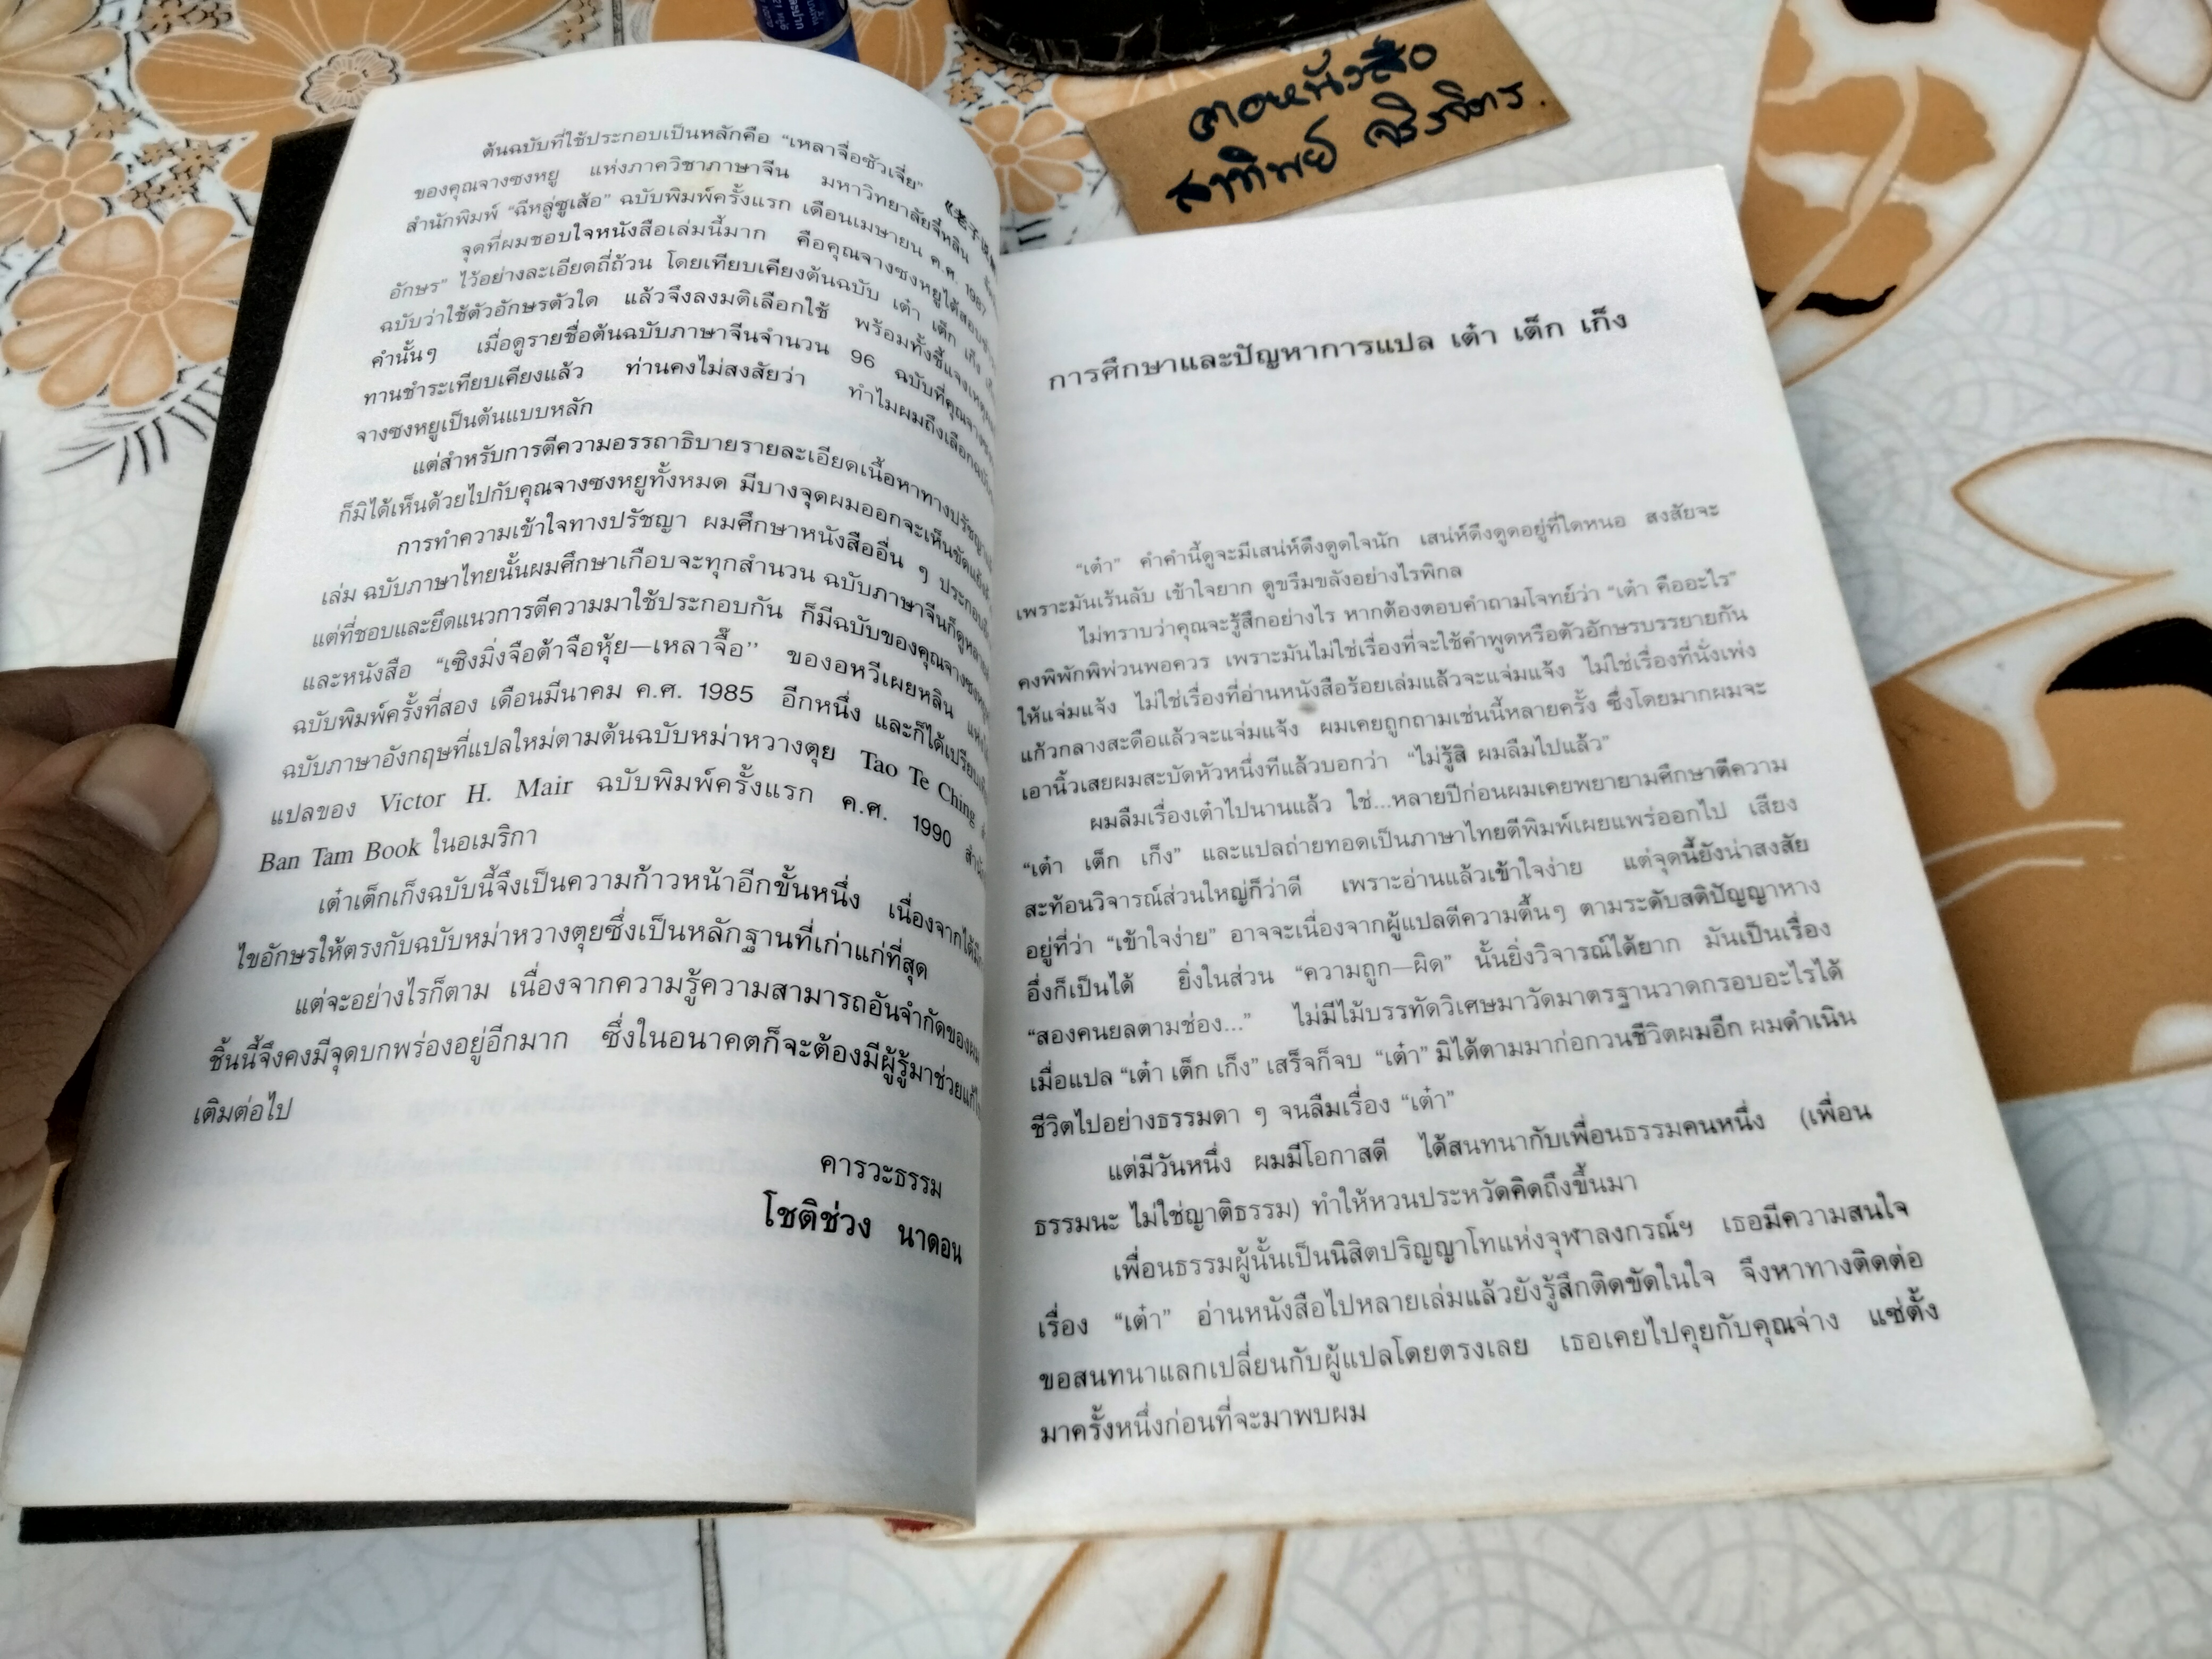 คอหนังสือ
ต้นฉบับที่ใช้ประกอบเป็นหลักคือ “เหลาจื่อซัวเจี่ย”
ของคุณจางซงหยู แห่งภาควิชาภาษาจีน มหาวิทยาลัยจี้หลิน
สำนักพิมพ์ “ฉีหลู่ซูเส้อ” ฉบับพิมพ์ครั้งแรก เดือนเมษายน ค.ศ. 1987
จุดที่ผมชอบใจหนังสือเล่มนี้มาก คือคุณจางซงหยูได้สอบชำ
อักษร” ไว้อย่างละเอียดถี่ถ้วน โดยเทียบเคียงต้นฉบับ เต๋า เต็ก เก็ง
ฉบับว่าใช้ตัวอักษรตัวใด แล้วจึงลงมติเลือกใช้ พร้อมทั้งชี้แจงเหตุผล
คำนั้นๆ เมื่อดูรายชื่อต้นฉบับภาษาจีนจำนวน 96 ฉบับที่คุณจาง
ทานชำระเทียบเคียงแล้ว ท่านคงไม่สงสัยว่า ทำไมผมถึงเลือกฉบับ
จางซงหยูเป็นต้นแบบหลัก
แต่สำหรับการตีความอรรถาธิบายรายละเอียดเนื้อหาทางปรัชญา
ก็มิได้เห็นด้วยไปกับคุณจางซงหยูทั้งหมด มีบางจุดผมออกจะเห็นขัดแย้ง
การทำความเข้าใจทางปรัชญา ผมศึกษาหนังสืออื่น ๆ ประกอบ
เล่ม ฉบับภาษาไทยนั้นผมศึกษาเกือบจะทุกสำนวน ฉบับภาษาจีนก็ดูหลาย
แต่ที่ชอบและยึดแนวการตีความมาใช้ประกอบกัน ก็มีฉบับของคุณจางซงหยู
และหนังสือ “เชิงมิ่งจือต้าจือหุ้ย—เหลาจื๊อ” ของอหวีเผยหลิน แห่ง
ฉบับพิมพ์ครั้งที่สอง เดือนมีนาคม ค.ศ. 1985 อีกหนึ่ง และก็ได้เปรียบ
ฉบับภาษาอังกฤษที่แปลใหม่ตามต้นฉบับหม่าหวางตุย Tao Te Ching
แปลของ Victor H. Mair ฉบับพิมพ์ครั้งแรก ค.ศ. 1990
Ban Tam Book ในอเมริกา
เต๋าเต็กเก็งฉบับนี้จึงเป็นความก้าวหน้าอีกขั้นหนึ่ง เนื่องจากได้
ไขอักษรให้ตรงกับฉบับหม่าหวางตุยซึ่งเป็นหลักฐานที่เก่าแก่ที่สุด
แต่จะอย่างไรก็ตาม เนื่องจากความรู้ความสามารถอันจำกัดของผม
ชิ้นนี้จึงคงมีจุดบกพร่องอยู่อีกมาก ซึ่งในอนาคตก็จะต้องมีผู้รู้มาช่วยแก้ไข
เติมต่อไป
คารวะธรรม
โชติช่วง นาดอน
การศึกษาและปัญหาการแปล เต๋า เต็ก เก็ง
“เต๋า” คำคำนี้ดูจะมีเสน่ห์ดึงดูดใจนัก เสน่ห์ดึงดูดอยู่ที่ใดหนอ สงสัยจะ
เพราะมันเร้นลับ เข้าใจยาก ดูขรึมขลังอย่างไรพิกล
ไม่ทราบว่าคุณจะรู้สึกอย่างไร หากต้องตอบคำถามโจทย์ว่า “เต๋า คืออะไร”
คงพิพักพิพ่วนพอควร เพราะมันไม่ใช่เรื่องที่จะใช้คำพูดหรือตัวอักษรบรรยายกัน
ให้แจ่มแจ้ง ไม่ใช่เรื่องที่อ่านหนังสือร้อยเล่มแล้วจะแจ่มแจ้ง ไม่ใช่เรื่องที่นั่งเพ่ง
แก้วกลางสะดือแล้วจะแจ่มแจ้ง ผมเคยถูกถามเช่นนี้หลายครั้ง ซึ่งโดยมากผมจะ
เอานิ้วเสยผมสะบัดหัวหนึ่งทีแล้วบอกว่า “ไม่รู้สิ ผมลืมไปแล้ว”
ผมลืมเรื่องเต๋าไปนานแล้ว ใช่...หลายปีก่อนผมเคยพยายามศึกษาตีความ
“เต๋า เต็ก เก็ง” และแปลถ่ายทอดเป็นภาษาไทยตีพิมพ์เผยแพร่ออกไป เสียง
สะท้อนวิจารณ์ส่วนใหญ่ก็ว่าดี เพราะอ่านแล้วเข้าใจง่าย แต่จุดนี้ยังน่าสงสัย
อยู่ที่ว่า “เข้าใจง่าย” อาจจะเนื่องจากผู้แปลตีความตื้นๆ ตามระดับสติปัญญาหาง
อึ่งก็เป็นได้ ยิ่งในส่วน “ความถูก—ผิด” นั้นยิ่งวิจารณ์ได้ยาก มันเป็นเรื่อง
“สองคนยลตามช่อง...” ไม่มีไม้บรรทัดวิเศษมาวัดมาตรฐานวาดกรอบอะไรได้
เมื่อแปล “เต๋า เต็ก เก็ง” เสร็จก็จบ “เต๋า” มิได้ตามมาก่อกวนชีวิตผมอีก ผมดำเนิน
ชีวิตไปอย่างธรรมดา ๆ จนลืมเรื่อง “เต๋า”
แต่มีวันหนึ่ง ผมมีโอกาสดี ได้สนทนากับเพื่อนธรรมคนหนึ่ง (เพื่อน
ธรรมนะ ไม่ใช่ญาติธรรม) ทำให้หวนประหวัดคิดถึงขึ้นมา
เพื่อนธรรมผู้นั้นเป็นนิสิตปริญญาโทแห่งจุฬาลงกรณ์ฯ เธอมีความสนใจ
เรื่อง “เต๋า” อ่านหนังสือไปหลายเล่มแล้วยังรู้สึกติดขัดในใจ จึงหาทางติดต่อ
ขอสนทนาแลกเปลี่ยนกับผู้แปลโดยตรงเลย เธอเคยไปคุยกับคุณจ่าง แซ่ตั้ง
มาครั้งหนึ่งก่อนที่จะมาพบผม